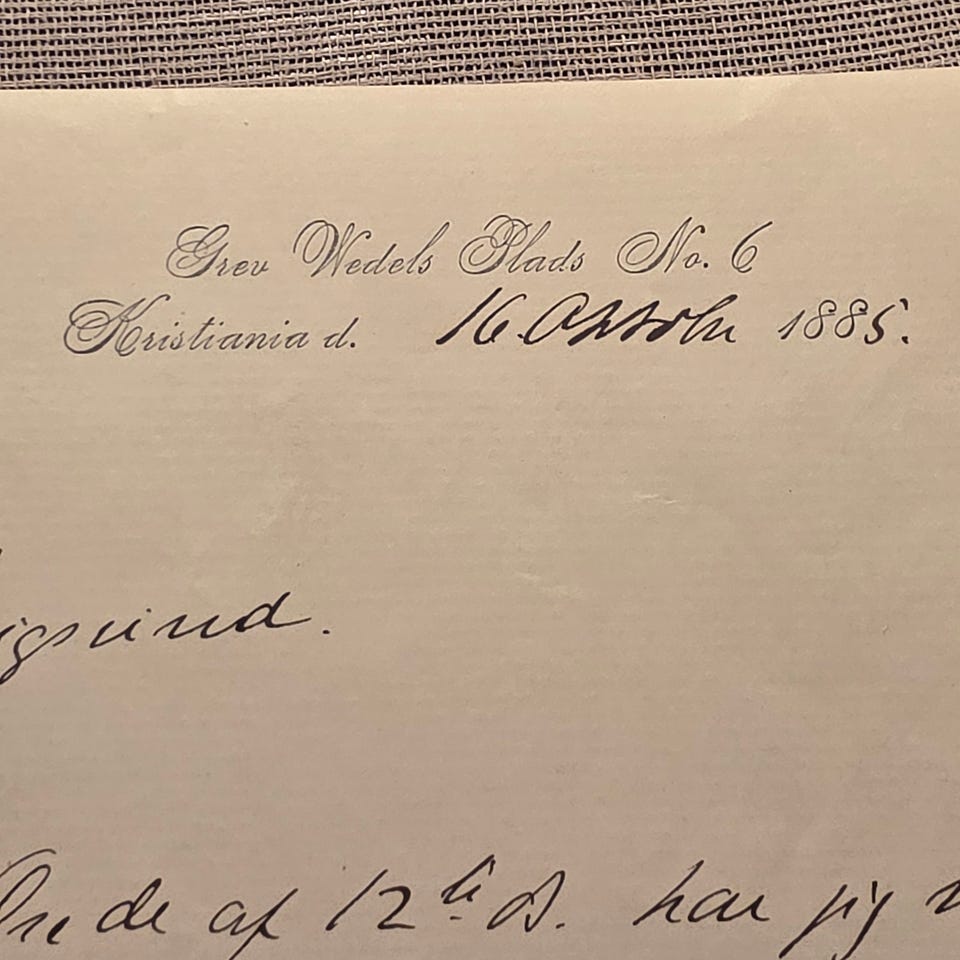 Grev Wedels Plads No. 6
Kristiania d. 16. Oktober 1885.
igsvind.
af 12te ds. har jeg